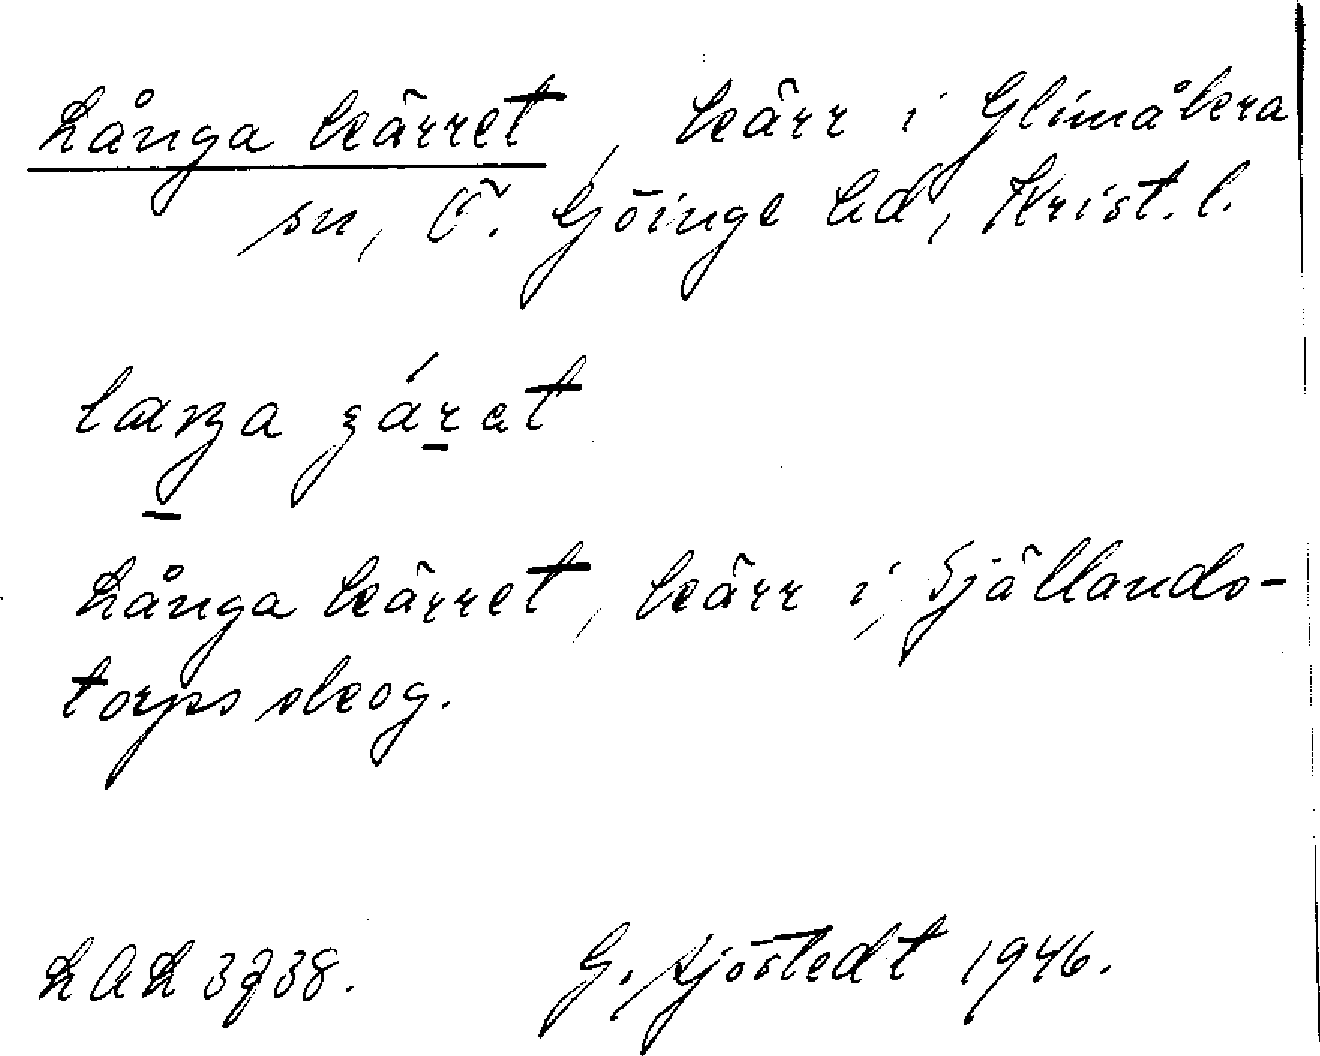 Långa kärret, kärr i Glimåkra
sn, Ö. Göinge hd, Krist. l.
Långa kärret, kärr i Själlands-
torps skog.
LAL 3738. G. Sjöstedt 1946.